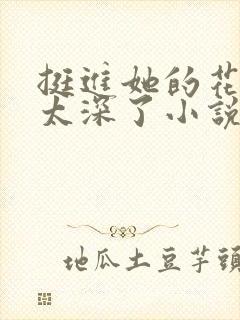 挺進她的花
太深了小說
地瓜土豆芋頭